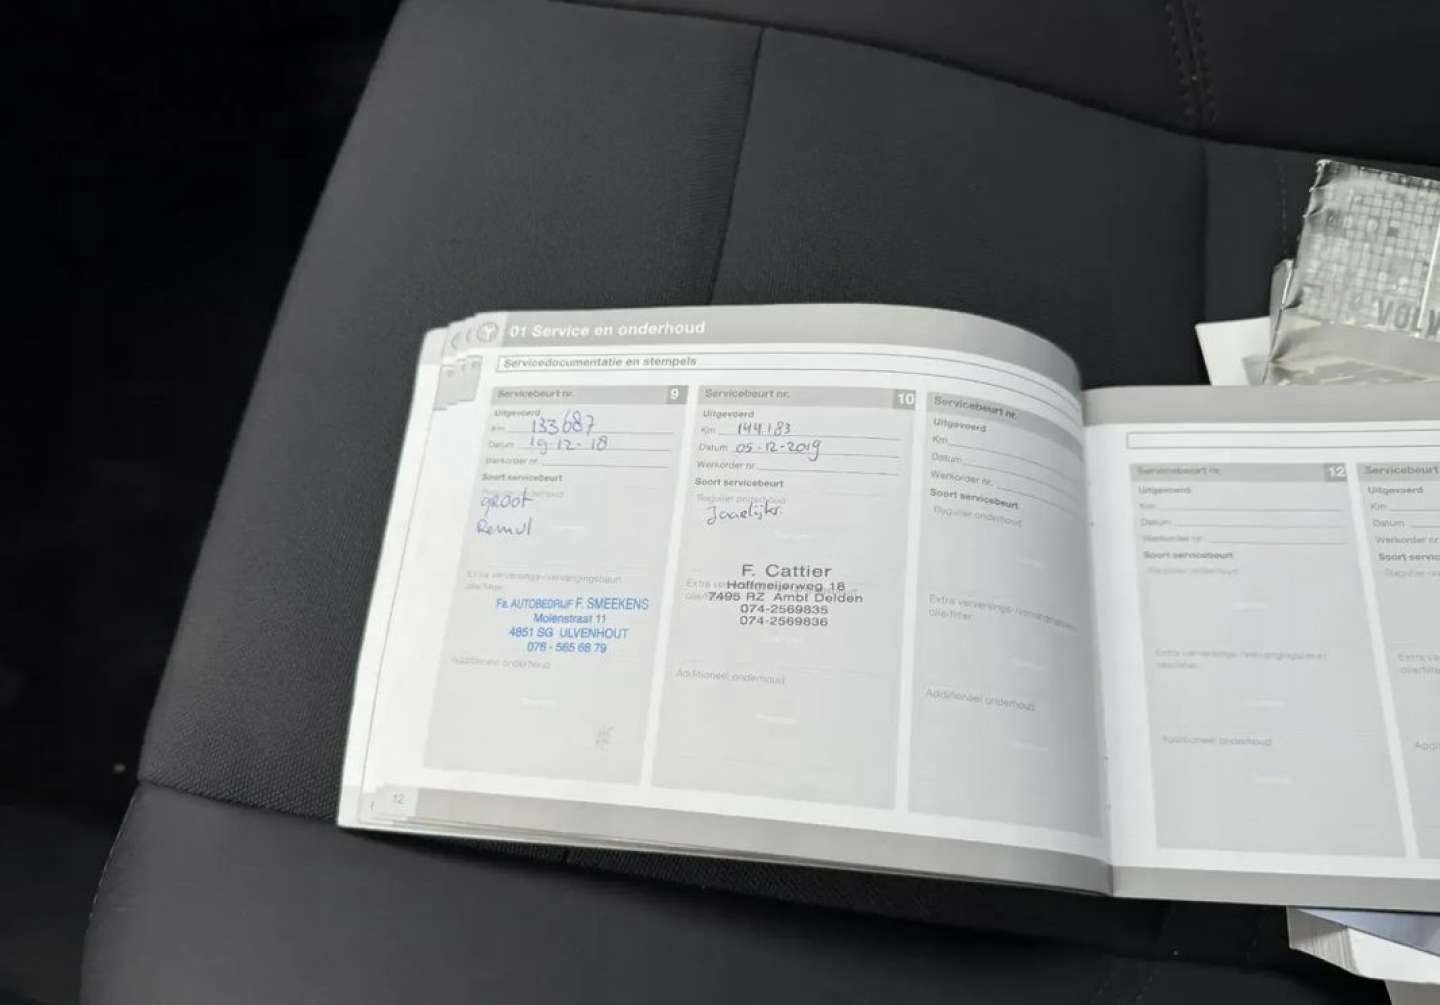 01 Service en onderhoud
Servicedocumentatie en stempels
Servicebeurt nr. 9
Uitgevoerd
Km 133687
Datum 19-12-18
Werkorder nr.
Soort servicebeurt
groot
Remvl
Extra verversings-/vervangingsbeurt
olie/filter
Fa. AUTOBEDRIJF F. SMEEKENS
Molenstraat 11
4851 SG ULVENHOUT
076 - 565 68 79
Additioneel onderhoud
Servicebeurt nr. 10
Uitgevoerd
Km 144.183
Datum 05-12-2019
Werkorder nr.
Soort servicebeurt
Regulier onderhoud
Jaarlijks.
F. Cattier
Hoffmeijerweg 18
7495 RZ Ambt Delden
074-2569835
074-2569836
Additioneel onderhoud
Servicebeurt nr.
Uitgevoerd
Km
Datum
Werkorder nr.
Soort servicebeurt
Regulier onderhoud
Extra verversings-/vervangingsbeurt
olie-/filter
Additioneel onderhoud
12
Servicebeurt nr. 12
Uitgevoerd
Km
Datum
Werkorder nr.
Soort servicebeurt
Regulier onderhoud
Extra verversings-/vervangingsbeurt
olie/filter
Additioneel onderhoud
Servicebeurt
Uitgevoerd
Km
Datum
Werkorder nr.
Soort servic
Regulier onderhoud
Extra ve
olie/filter
VOLV